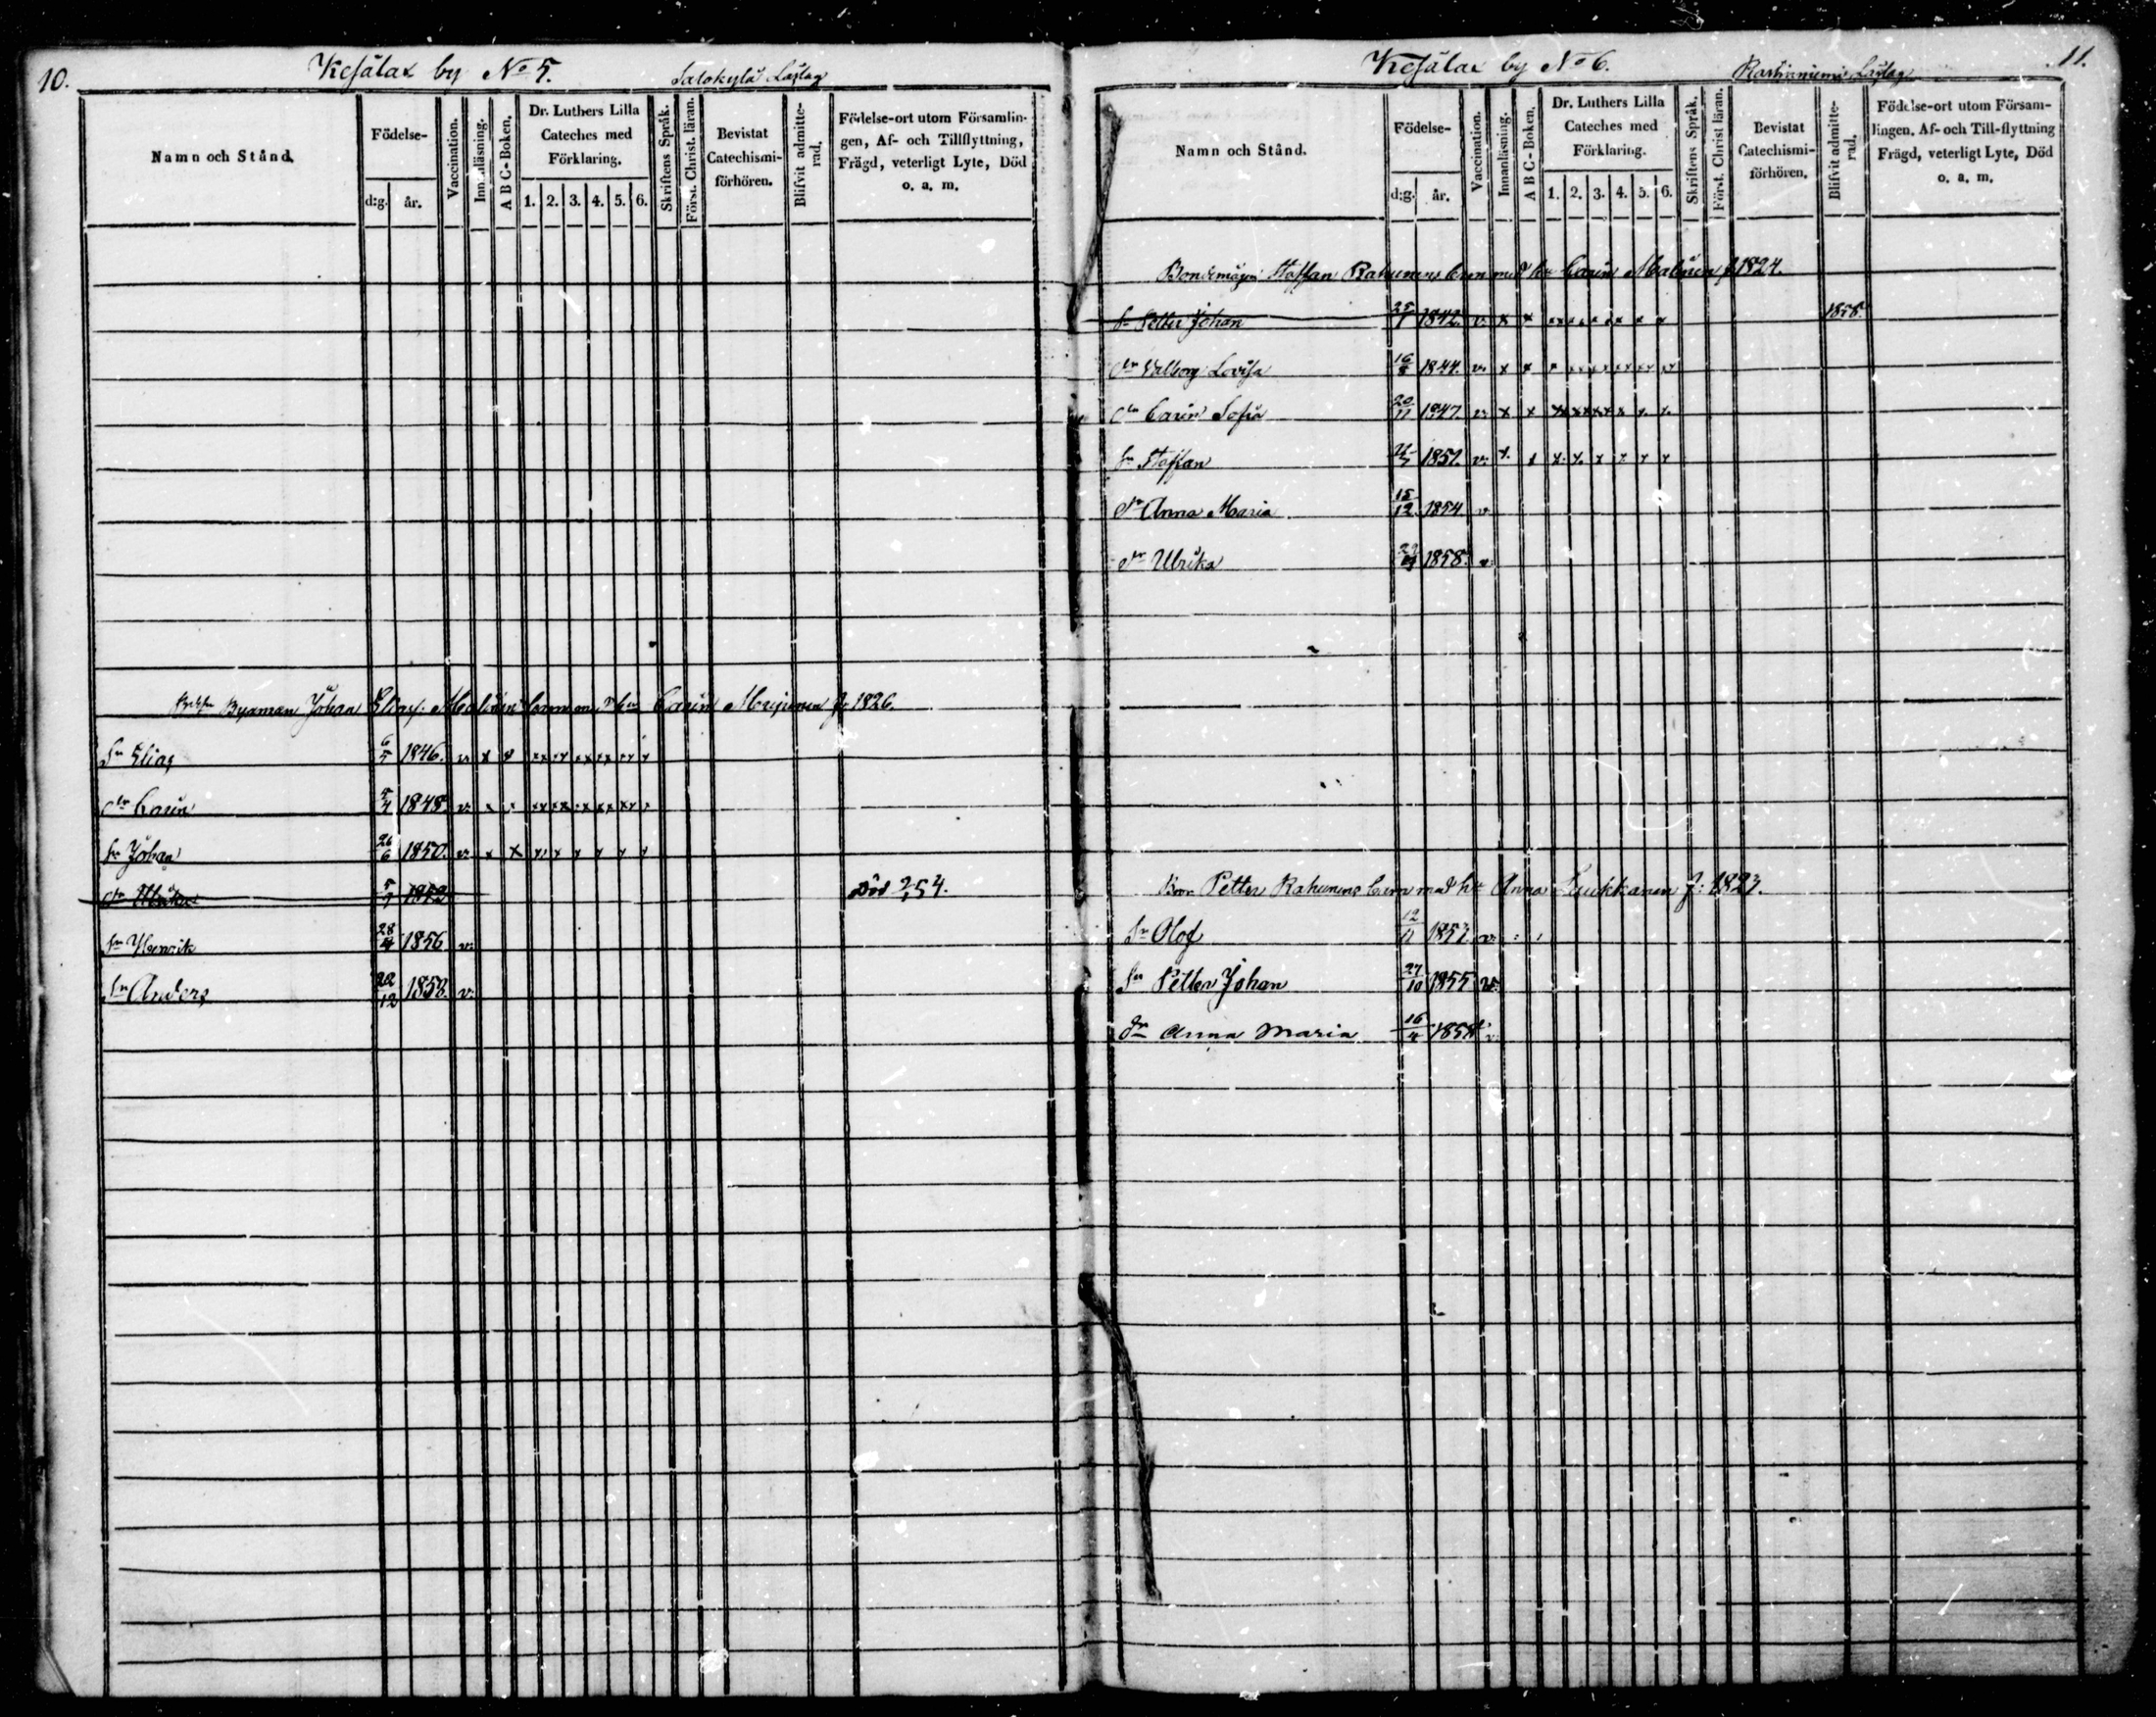 10.
Kesälax by No 5.
Salokylä Läslag
Namn och Stånd.
Födelse-
d:g. år.
Vaccination.
Innanläsning.
A B C-Boken.
Dr. Luthers Lilla
Cateches med
Förklaring.
1. 2. 3. 4. 5. 6.
Skriftens Språk.
Först. Christ. läran.
Bevistat
Catechismi-
förhören.
Blifvit admitte-
rad.
Födelse-ort utom Församlin-
gen, Af- och Tillflyttning,
Frägd, veterligt Lyte, Död
o. a. m.
Byaman Johan Eliass: Malinens barn med h:u Carin f: 1826.
Sn Elias 6/5 1846. v. x x xx xx xx xx xx x
dtr Carin 5/4 1848. v. x x xx xx xx xx xx x
Sn Johan 26/6 1850. v. x x x x x x x x
dtr Ulrika 5/7 1852 Död 54.
Sn Henrik 28/4 1856 v.
Sn Anders 22/12 1858. v.
11.
Kesälax by No 6.
Rastinniemi Läslag
Namn och Stånd.
Födelse-
d:g. år.
Vaccination.
Innanläsning.
A B C-Boken.
Dr. Luthers Lilla
Cateches med
Förklaring.
1. 2. 3. 4. 5. 6.
Skriftens Språk.
Först. Christ läran.
Bevistat
Catechismi-
förhören.
Blifvit admitte-
rad.
Födelse-ort utom Försam-
lingen. Af- och Till-flyttning
Frägd, veterligt Lyte, Död
o. a. m.
Bondemågen Staffan Rahunens barn med h:u Carin Malinen f 1824.
Sn Petter Johan 25/1 1842. v. x x xx xx xx x x 1858.
dtr Valborg Lovisa 16/8 1844. v. x x x xx xx xx xx xx
dtr Carin Sofia 20/11 1847. v. x x xx xx xx x x x
Sn Staffan 1851. v. x x x x x x x x
dtr Anna Maria 15/12 1854. v
dtr Ulrika 1858. v.
Petter Rahunens barn med h:u Anna Laukkanen f: 1823.
Sn Olof 12/11 1853 v.
Sn Petter Johan 27/10 1855 v.
dr Anna Maria 16/4 1858 v